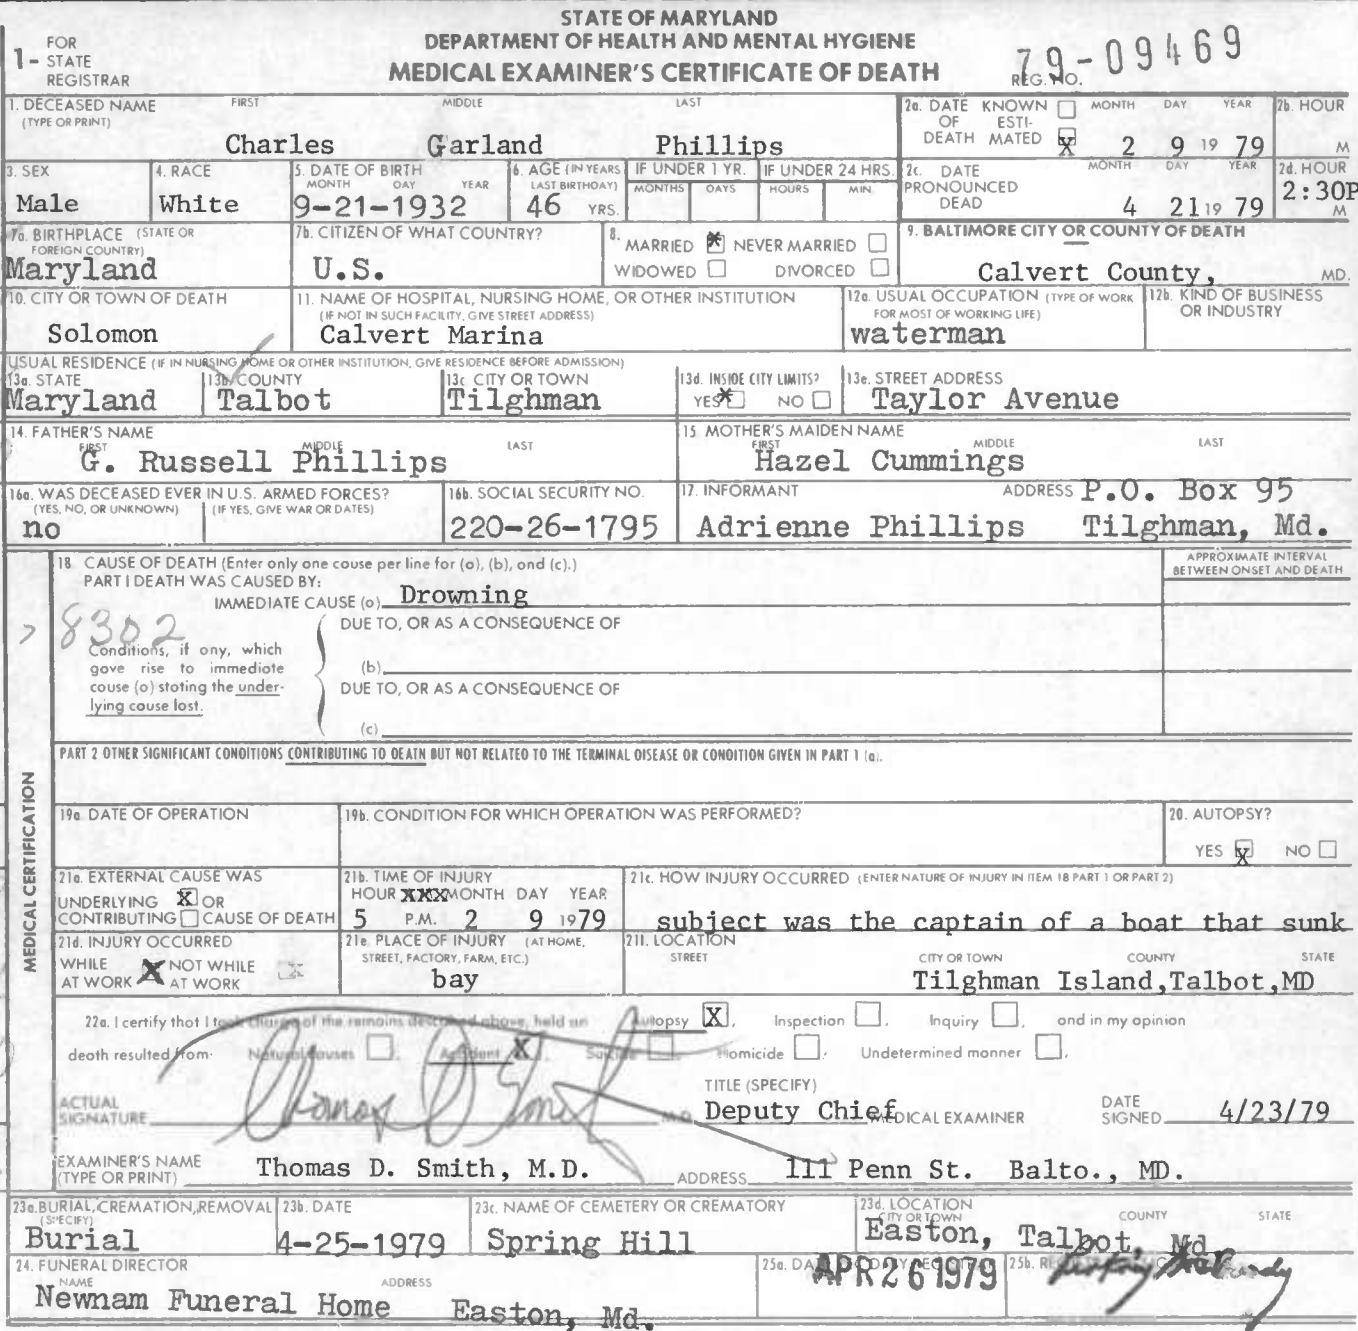 STATE OF MARYLAND
DEPARTMENT OF HEALTH AND MENTAL HYGIENE
MEDICAL EXAMINER'S CERTIFICATE OF DEATH
1- FOR STATE REGISTRAR
REG. NO. 79-09469
1. DECEASED NAME (TYPE OR PRINT) FIRST MIDDLE LAST
Charles Garland Phillips
2a. DATE OF DEATH KNOWN ☐ ESTIMATED ☒ MONTH DAY YEAR
2 9 19 79
2b. HOUR M
3. SEX
Male
4. RACE
White
5. DATE OF BIRTH MONTH DAY YEAR
9-21-1932
6. AGE (IN YEARS LAST BIRTHDAY)
46 YRS.
IF UNDER 1 YR. MONTHS DAYS
IF UNDER 24 HRS. HOURS MIN.
2c. DATE PRONOUNCED DEAD MONTH DAY YEAR
4 21 19 79
2d. HOUR
2:30P M
7a. BIRTHPLACE (STATE OR FOREIGN COUNTRY)
Maryland
7b. CITIZEN OF WHAT COUNTRY?
U.S.
8. MARRIED ☒ NEVER MARRIED ☐
WIDOWED ☐ DIVORCED ☐
9. BALTIMORE CITY OR COUNTY OF DEATH
Calvert County, MD.
10. CITY OR TOWN OF DEATH
Solomon
11. NAME OF HOSPITAL, NURSING HOME, OR OTHER INSTITUTION
(IF NOT IN SUCH FACILITY, GIVE STREET ADDRESS)
Calvert Marina
12a. USUAL OCCUPATION (TYPE OF WORK FOR MOST OF WORKING LIFE)
waterman
12b. KIND OF BUSINESS OR INDUSTRY
USUAL RESIDENCE (IF IN NURSING HOME OR OTHER INSTITUTION, GIVE RESIDENCE BEFORE ADMISSION)
13a. STATE
Maryland
13b. COUNTY
Talbot
13c CITY OR TOWN
Tilghman
13d. INSIDE CITY LIMITS?
YES ☒ NO ☐
13e. STREET ADDRESS
Taylor Avenue
14. FATHER'S NAME FIRST MIDDLE LAST
G. Russell Phillips
15 MOTHER'S MAIDEN NAME FIRST MIDDLE LAST
Hazel Cummings
16a. WAS DECEASED EVER IN U.S. ARMED FORCES?
(YES, NO, OR UNKNOWN) (IF YES, GIVE WAR OR DATES)
no
16b. SOCIAL SECURITY NO.
220-26-1795
17. INFORMANT ADDRESS P.O. Box 95
Adrienne Phillips Tilghman, Md.
MEDICAL CERTIFICATION
18. CAUSE OF DEATH (Enter only one cause per line for (a), (b), and (c).)
PART I DEATH WAS CAUSED BY:
APPROXIMATE INTERVAL BETWEEN ONSET AND DEATH
IMMEDIATE CAUSE (a) Drowning
8302
DUE TO, OR AS A CONSEQUENCE OF
Conditions, if any, which gave rise to immediate cause (a) stating the underlying cause last.
(b)
DUE TO, OR AS A CONSEQUENCE OF
(c)
PART 2 OTHER SIGNIFICANT CONDITIONS CONTRIBUTING TO DEATH BUT NOT RELATED TO THE TERMINAL DISEASE OR CONDITION GIVEN IN PART 1 (a).
19a. DATE OF OPERATION
19b. CONDITION FOR WHICH OPERATION WAS PERFORMED?
20. AUTOPSY?
YES ☒ NO ☐
21a. EXTERNAL CAUSE WAS
UNDERLYING ☒ OR
CONTRIBUTING ☐ CAUSE OF DEATH
21b. TIME OF INJURY
HOUR XXX MONTH DAY YEAR
5 P.M. 2 9 1979
21c. HOW INJURY OCCURRED (ENTER NATURE OF INJURY IN ITEM 18 PART 1 OR PART 2)
subject was the captain of a boat that sunk
21d. INJURY OCCURRED
WHILE AT WORK X NOT WHILE AT WORK
21e. PLACE OF INJURY (AT HOME, STREET, FACTORY, FARM, ETC.)
bay
21f. LOCATION STREET CITY OR TOWN COUNTY STATE
Tilghman Island,Talbot,MD
22a. I certify that I took charge of the remains described above, held an Autopsy ☒, Inspection ☐, Inquiry ☐, and in my opinion
death resulted from: Natural causes ☐, Accident ☒, Suicide ☐, Homicide ☐, Undetermined manner ☐.
ACTUAL SIGNATURE M.D.
TITLE (SPECIFY)
Deputy Chief MEDICAL EXAMINER
DATE SIGNED 4/23/79
EXAMINER'S NAME (TYPE OR PRINT) Thomas D. Smith, M.D.
ADDRESS 111 Penn St. Balto., MD.
23a. BURIAL, CREMATION, REMOVAL (SPECIFY)
Burial
23b. DATE
4-25-1979
23c. NAME OF CEMETERY OR CREMATORY
Spring Hill
23d. LOCATION CITY OR TOWN COUNTY STATE
Easton, Talbot, Md
24. FUNERAL DIRECTOR
NAME ADDRESS
Newnam Funeral Home Easton, Md.
25a.
APR 26 1979
25b.